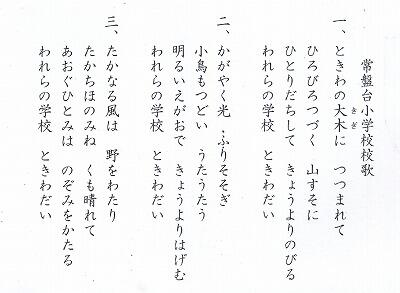 常盤台小学校校歌
一、ときわの大木に　つつまれて
ひろびろつづく　山すそに
ひとりだちして　きょうよりのびる
われらの学校　ときわだい
二、かがやく光　ふりそそぎ
小鳥もつどい　うたうたう
明るいえがおで　きょうよりはげむ
われらの学校　ときわだい
三、たかなる風は　野をわたり
たかちほのみね　くも晴れて
あおぐひとみは　のぞみをかたる
われらの学校　ときわだい
きぎ